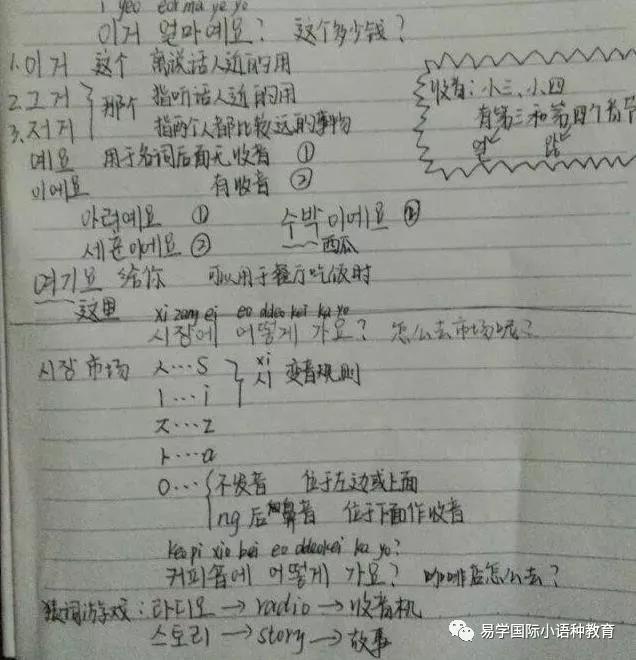 i geo eol ma ye yo
이거 얼마예요? 这个多少钱?
1.이거 这个 离说话人近的用
2.그거 那个 指听话人近的用
3.저거 指两个人都比较远的事物
收音:小三、小四
有第三和第四个音节
열 많
예요 用于名词后面无收音 ①
이에요 有收音 ②
아령예요 ① 수박이에요 ②
세폰이에요 ② 西瓜
여기요 给你 可以用于餐厅吃饭时
这里 xi zang ei eo ddeo kei ka yo
시장에 어떻게 가요? 怎么去市场呢?
시장 市场 ㅅ…S xi
ㅣ…i 시 变音规则
ㅈ…z
ㅏ…a
ㅇ… 不发音 位于左边或上面
ng 后鼻音 位于下面作收音
keo pi xio bei eo ddeokei ka yo?
커피숍에 어떻게 가요? 咖啡店怎么去?
猜词游戏:라디오→radio→收音机
스토리→story→故事
易学国际小语种教育